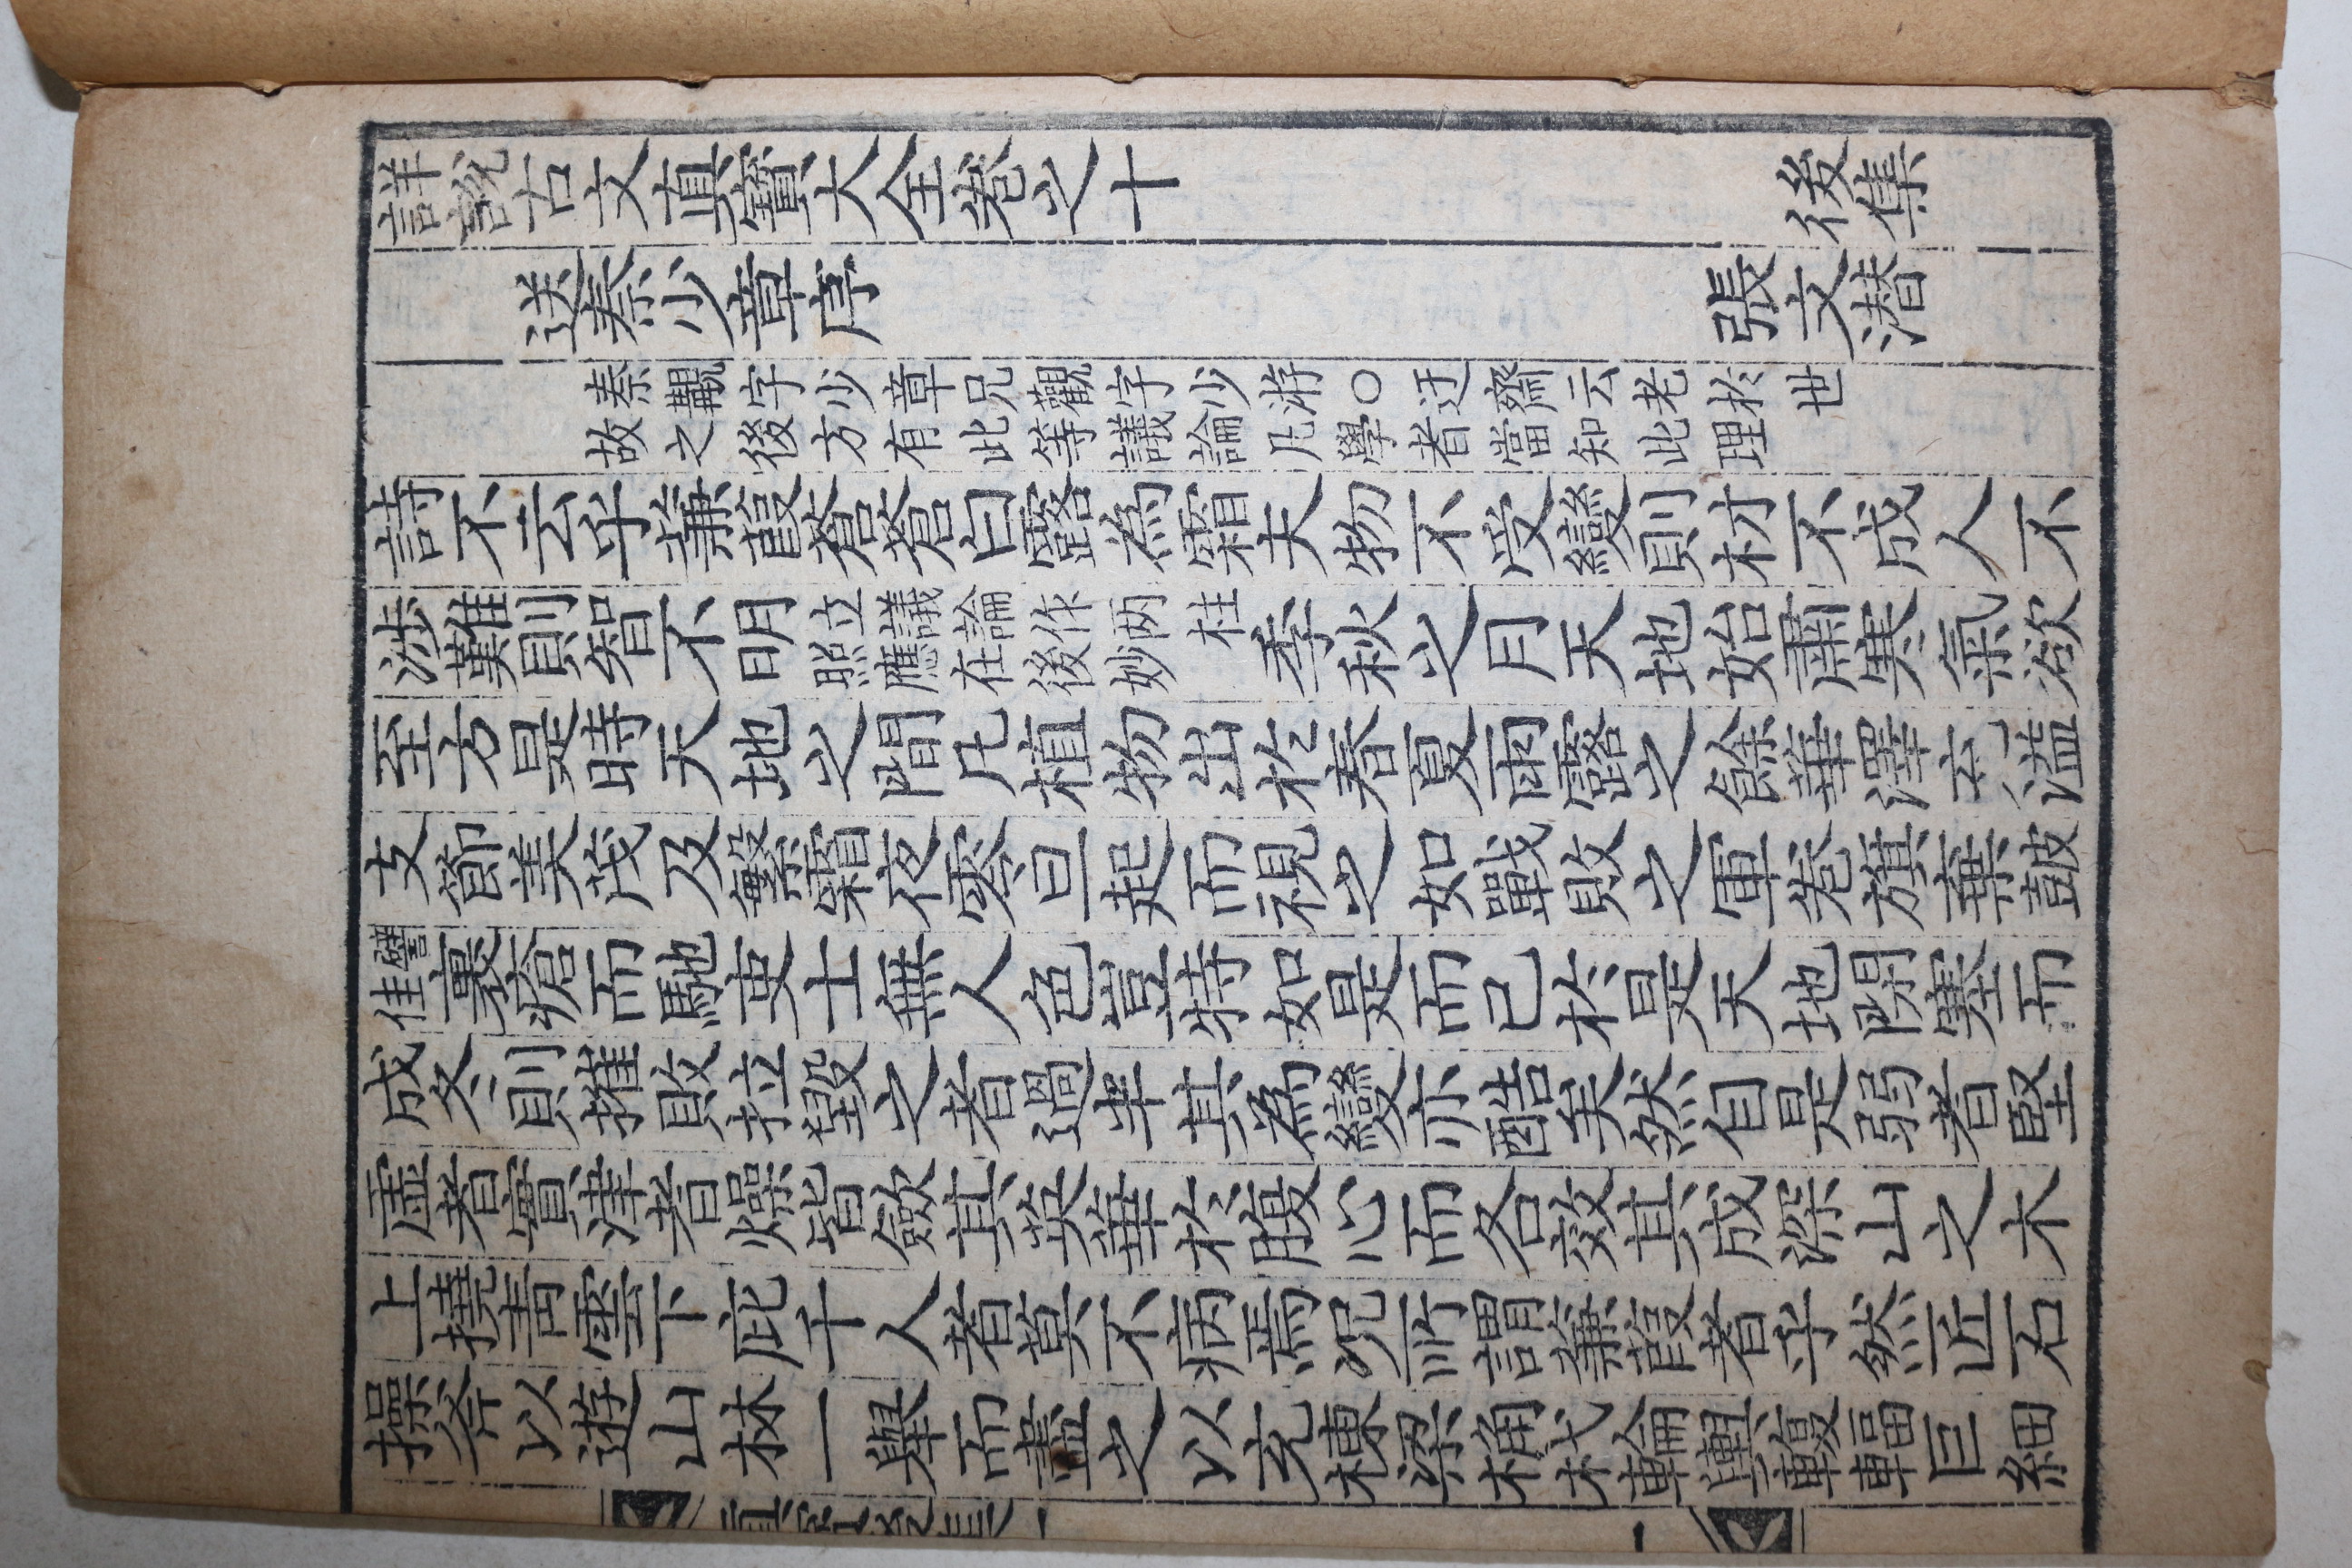 詳說古文真寶大全卷之十 後集
送秦少章序 張文潜
秦覯字少章兄觀字少游○迂齋云老於世
故之後方有此等議論凡學者當知此理
詩不云乎蒹葭蒼蒼白露為霜夫物不受變則材不成人不
涉難則智不明立議論作两柱照應在後妙季秋之月天地始肅寒氣欲
至方是時天地之間凡植物出於春夏雨露之餘華澤充溢
支節美茂及繁霜夜零旦起而視之如戰敗之軍卷旗棄皷
譬佳裹瘡而馳吏士無人色豈特如是而已於是天地閉塞而
成冬則摧敗拉毀之者過半其為變亦酷矣然自是弱者堅
虛者實津者燥皆歛其英華於腹心而各效其成深山之木
上撓青雲下庇千人者莫不病焉况所謂蒹葭者乎然匠石
操斧以遊山林一舉而盡之以充棟梁桷杙輪輿輹輻巨細